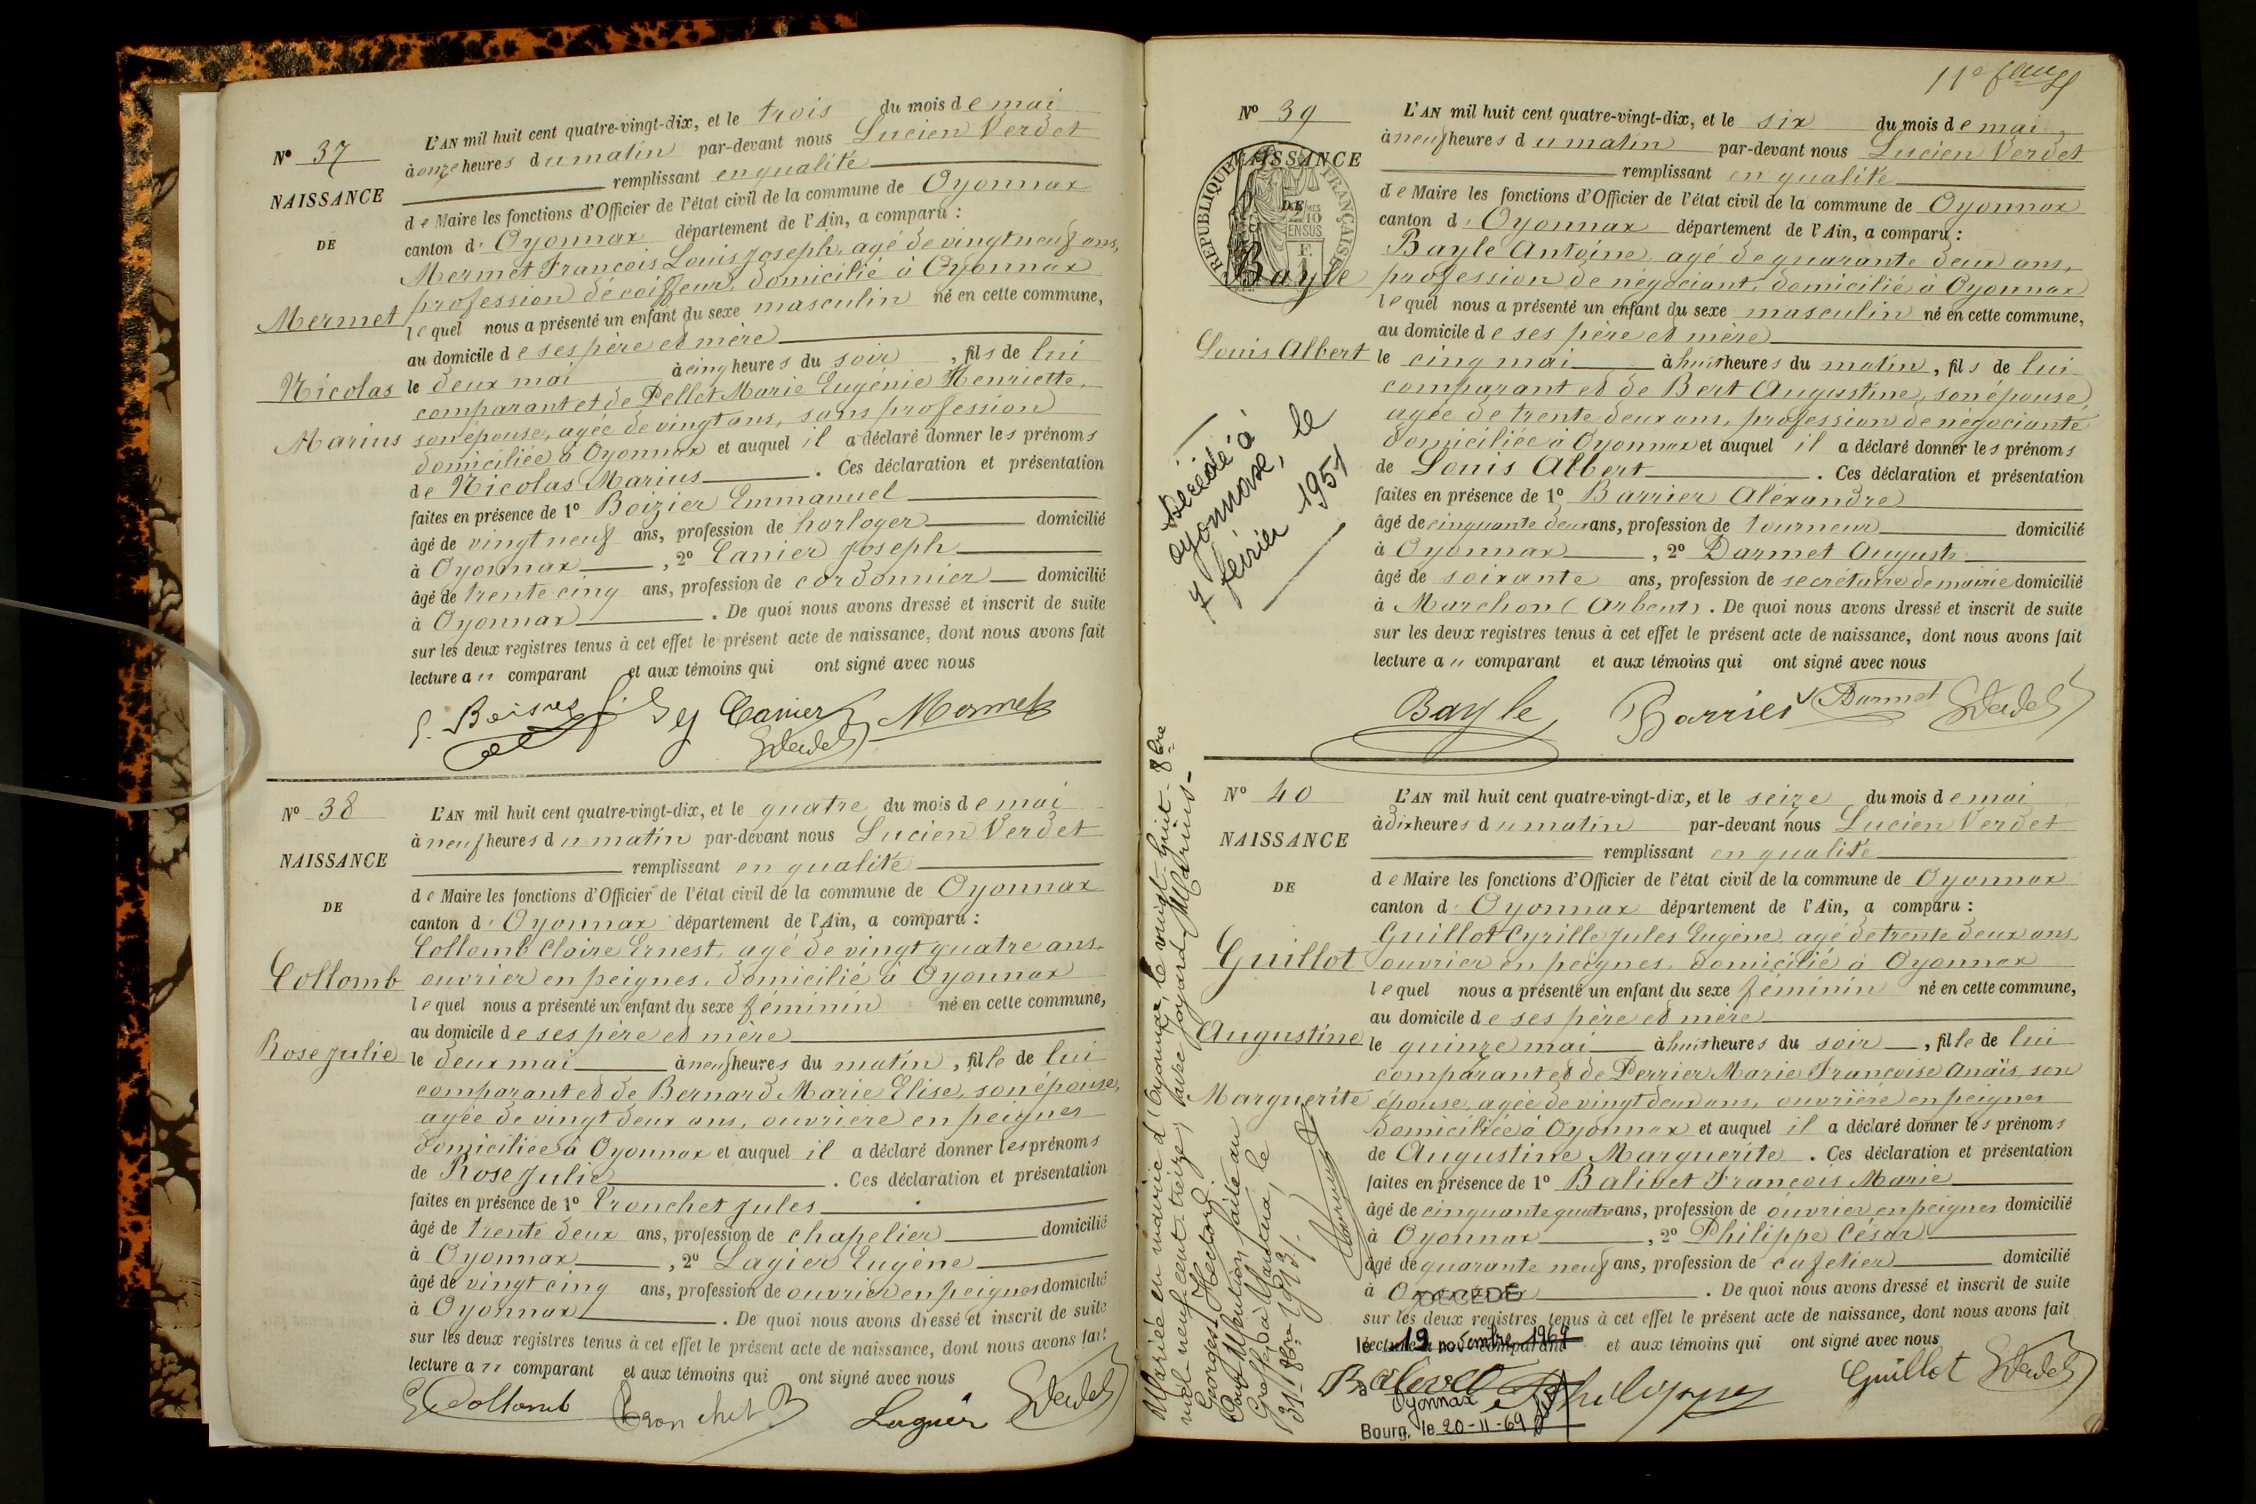 N° 37
NAISSANCE
DE
Mermet
Nicolas
Marius
L'AN mil huit cent quatre-vingt-dix, et le trois du mois de mai
à onze heures du matin par-devant nous Lucien Verdet
remplissant en qualité
de Maire les fonctions d'Officier de l'état civil de la commune de Oyonnax
canton d'Oyonnax département de l'Ain, a comparu :
Mermet François Louis Joseph, agé de vingt neuf ans,
profession de coiffeur, domicilié à Oyonnax
lequel nous a présenté un enfant du sexe masculin né en cette commune,
au domicile de ses père et mère
le deux mai à cinq heures du soir, fils de lui
comparant et de Pellet Marie Eugénie Henriette,
son épouse, agée de vingt ans, sans profession
domiciliée à Oyonnax et auquel il a déclaré donner les prénoms
de Nicolas Marius. Ces déclaration et présentation
faites en présence de 1° Boizier Emmanuel
âgé de vingt neuf ans, profession de horloger domicilié
à Oyonnax, 2° Canier Joseph
âgé de trente cinq ans, profession de cordonnier domicilié
à Oyonnax. De quoi nous avons dressé et inscrit de suite
sur les deux registres tenus à cet effet le présent acte de naissance, dont nous avons fait
lecture au comparant et aux témoins qui ont signé avec nous
Canier Mermet
N° 38
NAISSANCE
DE
Collomb
Rose Julie
L'AN mil huit cent quatre-vingt-dix, et le quatre du mois de mai
à neuf heures du matin par-devant nous Lucien Verdet
remplissant en qualité
de Maire les fonctions d'Officier de l'état civil de la commune de Oyonnax
canton d'Oyonnax département de l'Ain, a comparu :
Collomb Claire Ernest, agé de vingt quatre ans,
ouvrier en peignes, domicilié à Oyonnax
lequel nous a présenté un enfant du sexe féminin né en cette commune,
au domicile de ses père et mère
le deux mai à neuf heures du matin, fille de lui
comparant et de Bernard Marie Elise, son épouse,
agée de vingt deux ans, ouvrière en peignes
domiciliée à Oyonnax et auquel il a déclaré donner les prénoms
de Rose Julie. Ces déclaration et présentation
faites en présence de 1° Tronchet Jules
âgé de trente deux ans, profession de chapelier domicilié
à Oyonnax, 2° Lagier Eugène
âgé de vingt cinq ans, profession de ouvrier en peignes domicilié
à Oyonnax. De quoi nous avons dressé et inscrit de suite
sur les deux registres tenus à cet effet le présent acte de naissance, dont nous avons fait
lecture au comparant et aux témoins qui ont signé avec nous
Collomb Tronchet Lagier
11e
N° 39
NAISSANCE
DE
RÉPUBLIQUE FRANÇAISE
Bayle
Louis Albert
Décédé à
Oyonnax, le
7 février 1951
L'AN mil huit cent quatre-vingt-dix, et le six du mois de mai
à neuf heures du matin par-devant nous Lucien Verdet
remplissant en qualité
de Maire les fonctions d'Officier de l'état civil de la commune de Oyonnax
canton d'Oyonnax département de l'Ain, a comparu :
Bayle Antoine, agé de quarante deux ans,
profession de négociant, domicilié à Oyonnax
lequel nous a présenté un enfant du sexe masculin né en cette commune,
au domicile de ses père et mère
le cinq mai à huit heures du matin, fils de lui
comparant et de Bert Augustine, son épouse,
agée de trente deux ans, profession de négociante
domiciliée à Oyonnax et auquel il a déclaré donner les prénoms
de Louis Albert. Ces déclaration et présentation
faites en présence de 1° Barrier Alexandre
âgé de cinquante deux ans, profession de tourneur domicilié
à Oyonnax, 2° Darmet Auguste
âgé de soixante ans, profession de secrétaire de mairie domicilié
à Marchon (Arbent). De quoi nous avons dressé et inscrit de suite
sur les deux registres tenus à cet effet le présent acte de naissance, dont nous avons fait
lecture au comparant et aux témoins qui ont signé avec nous
Bayle Barrier Darmet
N° 40
NAISSANCE
DE
Guillot
Augustine
Marguerite
Mariée en mairie d'Oyonnax, le vingt-huit-8bre
mil neuf cent treize, avec Joyard Marius-
Georges Hector.
Dont Mention faite au
Greffe à Nantua, le
31-8bre-1913/.
L'AN mil huit cent quatre-vingt-dix, et le seize du mois de mai
à dix heures du matin par-devant nous Lucien Verdet
remplissant en qualité
de Maire les fonctions d'Officier de l'état civil de la commune de Oyonnax
canton d'Oyonnax département de l'Ain, a comparu :
Guillot Cyrille Jules Eugène, agé de trente deux ans
ouvrier en peignes, domicilié à Oyonnax
lequel nous a présenté un enfant du sexe féminin né en cette commune,
au domicile de ses père et mère
le quinze mai à huit heures du soir, fille de lui
comparant et de Perrier Marie Françoise Anaïs, son
épouse, agée de vingt deux ans, ouvrière en peignes
domiciliée à Oyonnax et auquel il a déclaré donner les prénoms
de Augustine Marguerite. Ces déclaration et présentation
faites en présence de 1° Balivet François Marie
âgé de cinquante quatre ans, profession de ouvrier en peignes domicilié
à Oyonnax, 2° Philippe César
âgé de quarante neuf ans, profession de cafetier domicilié
à Oyonnax. De quoi nous avons dressé et inscrit de suite
sur les deux registres tenus à cet effet le présent acte de naissance, dont nous avons fait
lecture au comparant et aux témoins qui ont signé avec nous
Balivet Philippe Guillot
DÉCÉDÉ
le 19 novembre 1969
à Oyonnax
Bourg, le 20-11-69